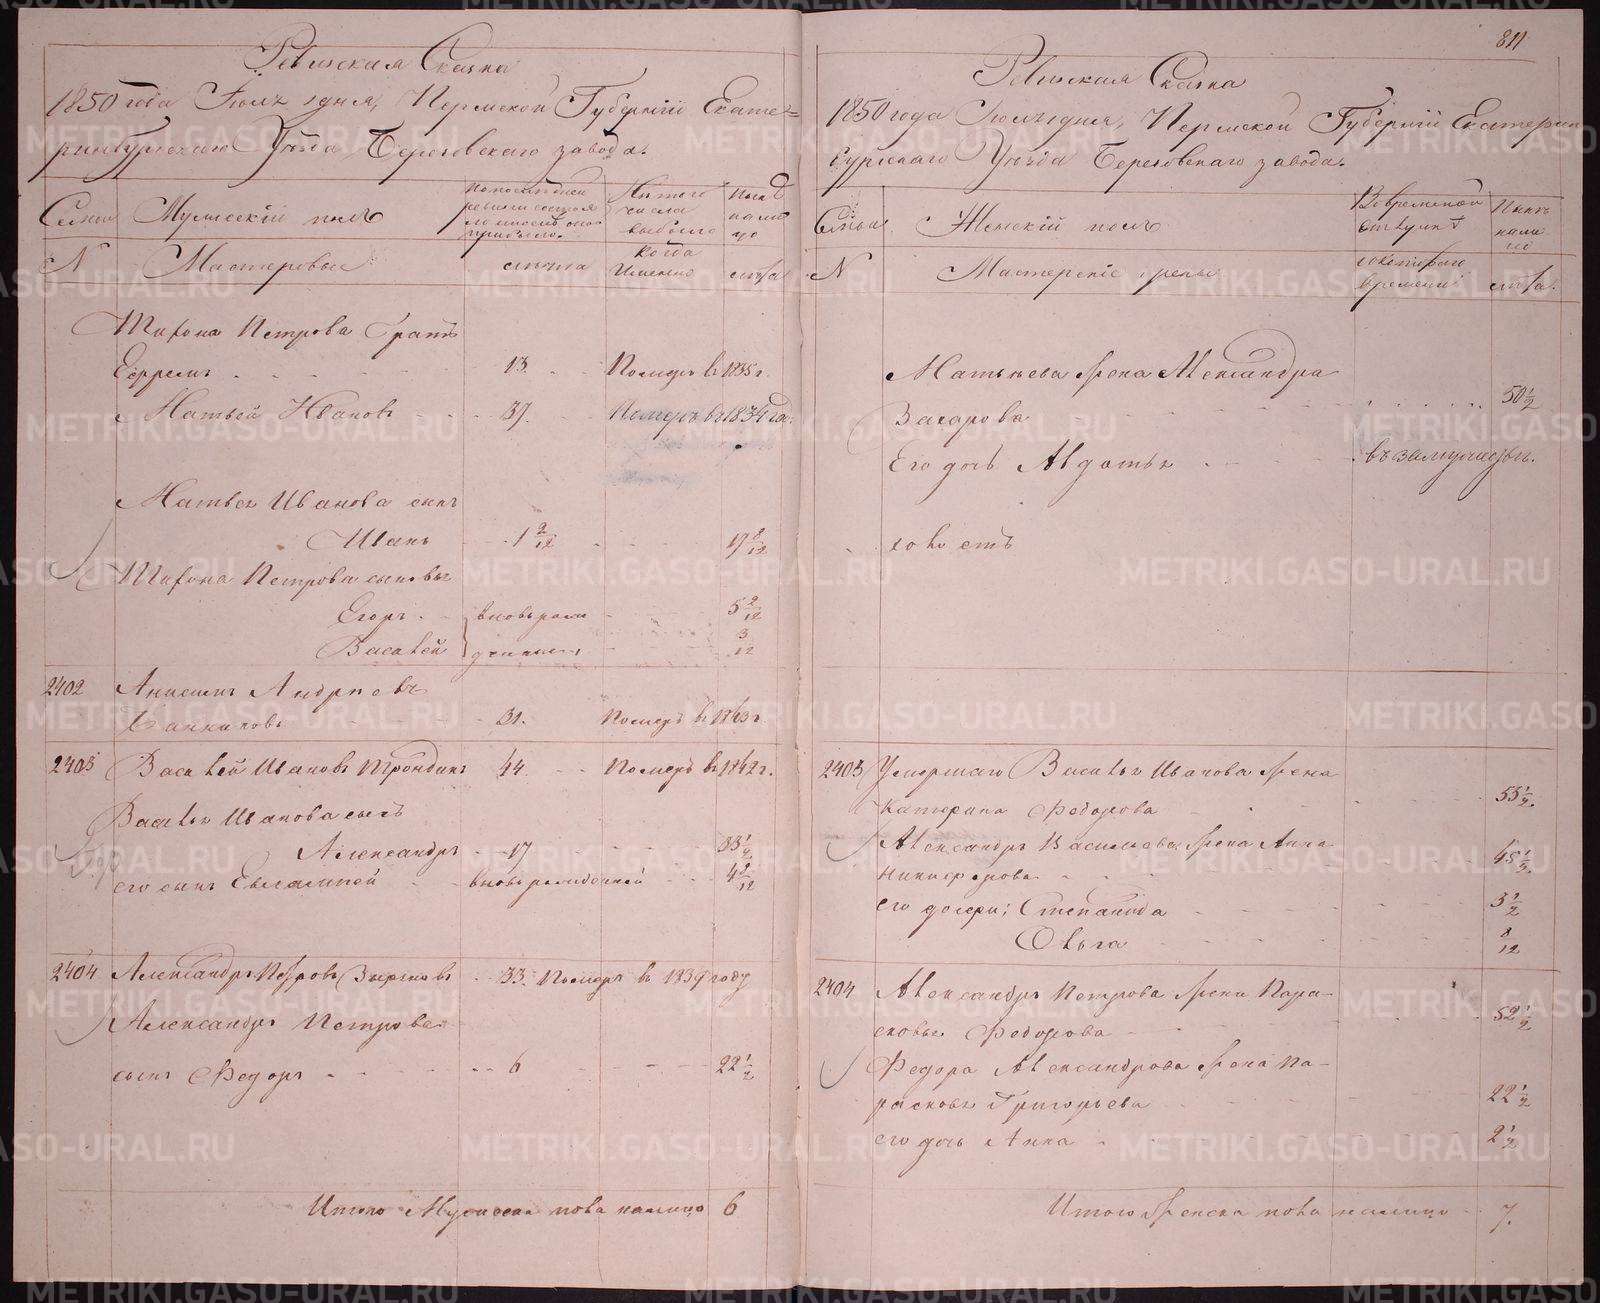 Ревизская Сказка
1850 года Июля 1 дня, Пермской Губернии Екате-
ринбургскаго Уезда Березовскаго завода.
Семьи
Мужескiй полъ
По последней ревизiи состояло и после оной прибыло.
Из того числа выбыло
Ныне на лицо
N
Мастеровые
лета
Когда Именно
лета
Тихона Петрова братъ
Ефремъ 13 Померъ в 1835 г.
Матвей Ивановъ 37. Померъ въ 1834 го.
Матвея Иванова сынъ
Иванъ 1 2/12 17 8/12
Тихона Петрова сыновья
Егоръ вновь рож 5 2/12
Василей денные 3/12
2402 Анисимъ Андреевъ
Банниковъ 31. Померъ в 1843 г.
2403 Василей Ивановъ Трондинъ 44. Померъ в 1842 г.
Василья Иванова сынъ
Александръ 17 33 1/2
его сынъ Евлампей вновь рожденной 4 8/12
2404 Александръ Петровъ Зыряновъ 33. Померъ въ 1839 году
Александръ Петрова
сынъ Федоръ 6 22 1/2
Итого Мужеска пола налицо 6
811
Ревизская Сказка
1850 года Июля 1 дня, Пермской Губернiи Екатерин
бургскаго Уезда Березовскаго завода.
Семьи
Женскiй полъ
Во временной отлучке
Ныне на лицо
N
Мастерскiе жены
с котораго времени
лета.
Матвеева жена Александра
Захарова 50 1/2
Его дочь Авдотья въ замужстве.
холостъ
2403 Умершаго Василья Иванова жена
Катерина Федорова 55 1/2.
Александръ Васильева жена Анна
Никифорова 45 1/2.
его дочери; Степанида 3 1/2
Ольга 8/12
2404 Александръ Петрова жена Пара-
сковья Федорова 52 1/2
Федора Александрова жена Па-
расковья Григорьева 22 1/2
его дочь Анна 2 1/2
Итого женска пола налицо 7.
METRIKI.GASO-URAL.RU